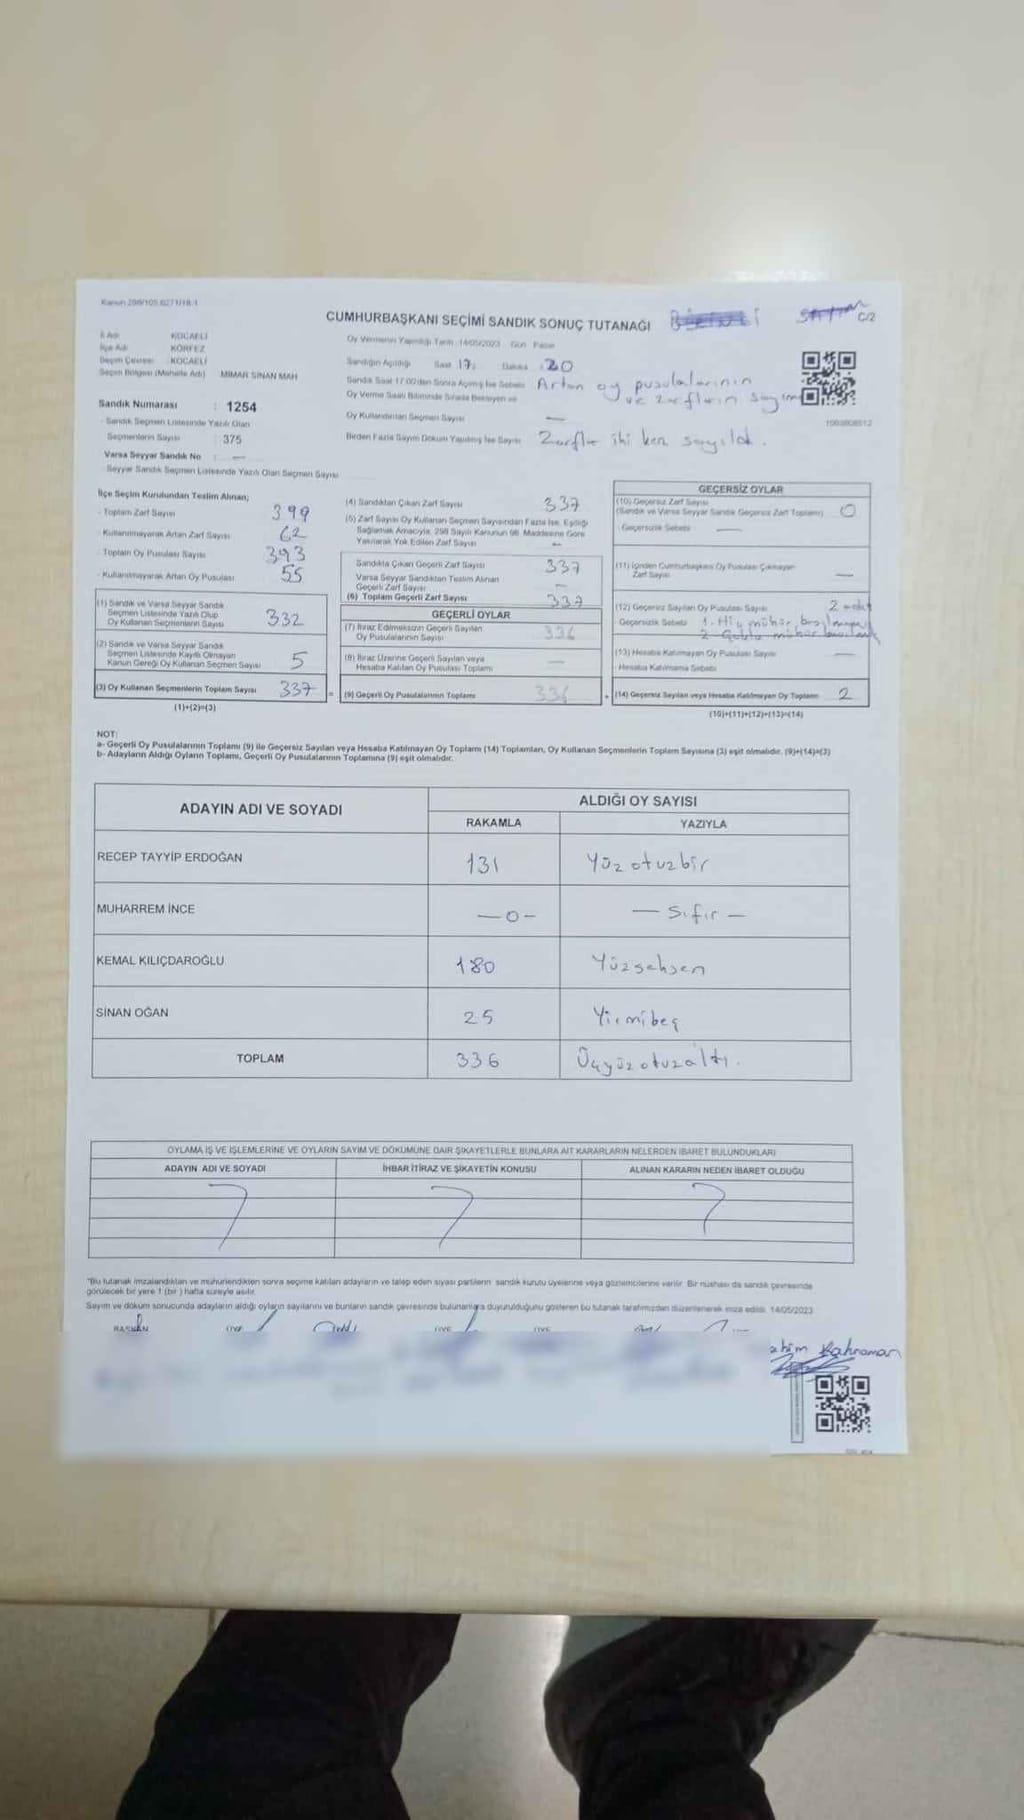 Kanun 298/105 6271/18-1
CUMHURBAŞKANI SEÇİMİ SANDIK SONUÇ TUTANAĞI
C/2
İl Adı KOCAELİ
İlçe Adı KÖRFEZ
Seçim Çevresi : KOCAELİ
Seçim Bölgesi (Mahalle Adı) MİMAR SİNAN MAH
Sandık Numarası : 1254
- Sandık Seçmen Listesinde Yazılı Olan
Seçmenlerin Sayısı : 375
Varsa Seyyar Sandık No : —
- Seyyar Sandık Seçmen Listesinde Yazılı Olan Seçmen Sayısı
Oy Vermenin Yapıldığı Tarih : 14/05/2023 Gün : Pazar
Sandığın Açıldığı Saat 17: Dakika : 20
Sandık Saat 17.00'dan Sonra Açılmış İse Sebebi Artan oy pusulalarının
ve zarfların sayımı
Oy Verme Saati Bitiminde Sırada Bekleyen ve
Oy Kullandırılan Seçmen Sayısı —
Birden Fazla Sayım Döküm Yapılmış İse Sayısı Zarflar iki kez sayıldı.
İlçe Seçim Kurulundan Teslim Alınan;
- Toplam Zarf Sayısı 399
- Kullanılmayarak Artan Zarf Sayısı 62
- Toplam Oy Pusulası Sayısı 393
- Kullanılmayarak Artan Oy Pusulası 55
(1) Sandık ve Varsa Seyyar Sandık
Seçmen Listesinde Yazılı Olup
Oy Kullanan Seçmenlerin Sayısı 332
(2) Sandık ve Varsa Seyyar Sandık
Seçmen Listesinde Kayıtlı Olmayan
Kanun Gereği Oy Kullanan Seçmen Sayısı 5
(3) Oy Kullanan Seçmenlerin Toplam Sayısı 337
(1)+(2)=(3)
(4) Sandıktan Çıkan Zarf Sayısı 337
(5) Zarf Sayısı Oy Kullanan Seçmen Sayısından Fazla İse, Eşitliği
Sağlamak Amacıyla, 298 Sayılı Kanunun 98. Maddesine Göre
Yakılarak Yok Edilen Zarf Sayısı —
Sandıkta Çıkan Geçerli Zarf Sayısı 337
Varsa Seyyar Sandıktan Teslim Alınan
Geçerli Zarf Sayısı —
(6) Toplam Geçerli Zarf Sayısı 337
GEÇERLİ OYLAR
(7) İtiraz Edilmeksizin Geçerli Sayılan
Oy Pusulalarının Sayısı 336
(8) İtiraz Üzerine Geçerli Sayılan veya
Hesaba Katılan Oy Pusulası Toplamı —
(9) Geçerli Oy Pusulalarının Toplamı 336
GEÇERSİZ OYLAR
(10) Geçersiz Zarf Sayısı
(Sandık ve Varsa Seyyar Sandık Geçersiz Zarf Toplamı) 0
- Geçersizlik Sebebi —
(11) İçinden Cumhurbaşkanı Oy Pusulası Çıkmayan
Zarf Sayısı —
(12) Geçersiz Sayılan Oy Pusulası Sayısı 2 adet
Geçersizlik Sebebi 1. Hiç mühür
(13) Hesaba Katılmayan Oy Pusulası Sayısı —
- Hesaba Katılmama Sebebi
(14) Geçersiz Sayılan veya Hesaba Katılmayan Oy Toplamı 2
(10)+(11)+(12)+(13)=(14)
NOT:
a- Geçerli Oy Pusulalarının Toplamı (9) ile Geçersiz Sayılan veya Hesaba Katılmayan Oy Toplamı (14) Toplamları, Oy Kullanan Seçmenlerin Toplam Sayısına (3) eşit olmalıdır. (9)+(14)=(3)
b- Adayların Aldığı Oyların Toplamı, Geçerli Oy Pusulalarının Toplamına (9) eşit olmalıdır.
ADAYIN ADI VE SOYADI ALDIĞI OY SAYISI
RAKAMLA YAZIYLA
RECEP TAYYİP ERDOĞAN 131 Yüz otuzbir
MUHARREM İNCE —0— — Sıfır —
KEMAL KILIÇDAROĞLU 180 Yüzseksen
SİNAN OĞAN 25 Yirmibeş
TOPLAM 336 Üçyüzotuzaltı.
OYLAMA İŞ VE İŞLEMLERİNE VE OYLARIN SAYIM VE DÖKÜMÜNE DAİR ŞİKAYETLERLE BUNLARA AİT KARARLARIN NELERDEN İBARET BULUNDUKLARI
ADAYIN ADI VE SOYADI İHBAR İTİRAZ VE ŞİKAYETİN KONUSU ALINAN KARARIN NEDEN İBARET OLDUĞU
"Bu tutanak imzalandıktan ve mühürlendikten sonra seçime katılan adayların ve talep eden siyasi partilerin sandık kurulu üyelerine veya gözlemcilerine verilir. Bir nüshası da sandık çevresinde
görülecek bir yere 1 (bir) hafta süreyle asılır.
Sayım ve döküm sonucunda adayların aldığı oyların sayılarını ve bunların sandık çevresinde bulunanlara duyurulduğunu gösteren bu tutanak tarafımızdan düzenlenerek imza edildi. 14/05/2023
BAŞKAN ÜYE ÜYE ÜYE
ahim Kahraman